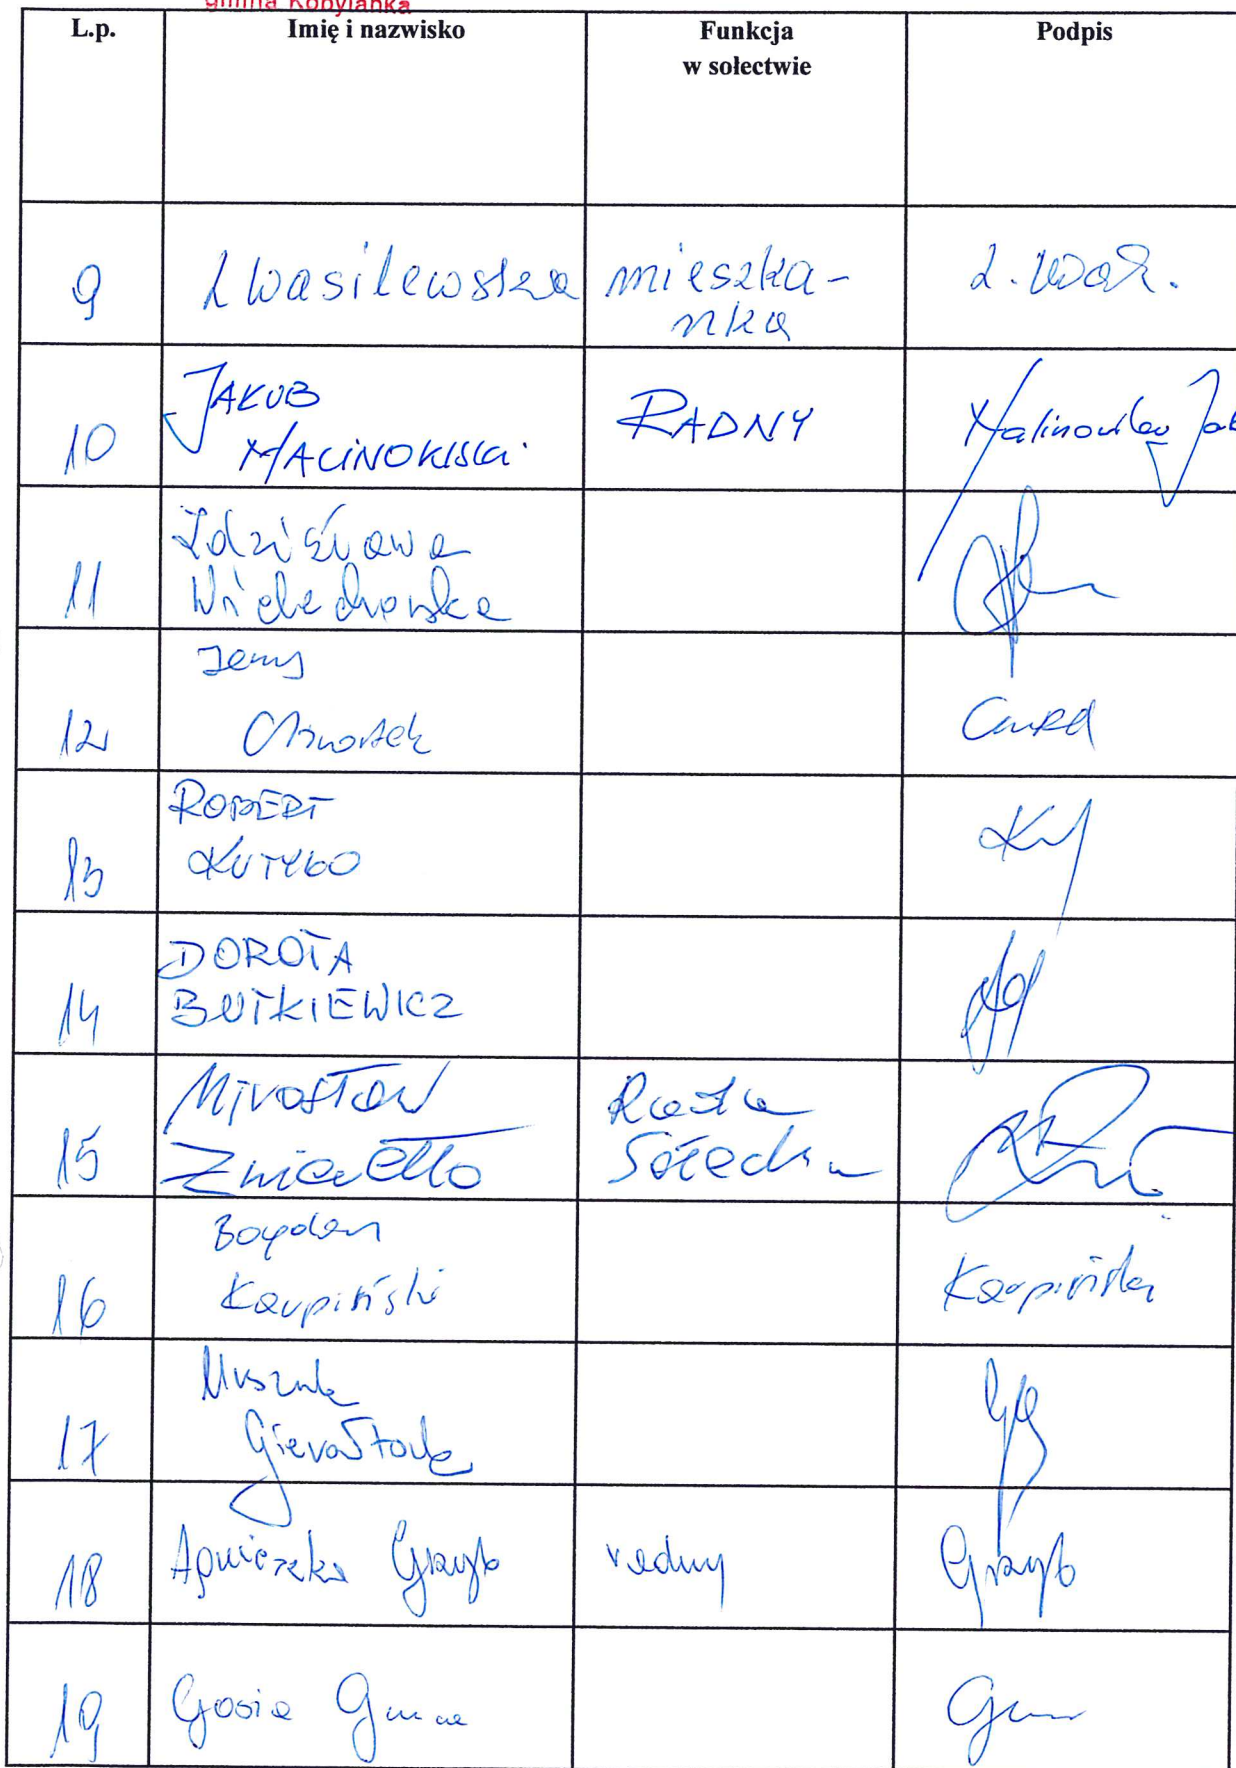 gmina Kobylanka
L.p. Imię i nazwisko Funkcja w sołectwie Podpis
9 L Wasilewska mieszka-
nka
10 JAKUB
MALINOWSKI RADNY Malinowski Jak
11 Zdzisława
12 Jerzy
13 ROBERT
KUTYŁO
14 DOROTA
BUTKIEWICZ
15 Mirosław Rada
Żmiejełło Sołecka
16 Bogdan
Karpiński Karpiński
17
18 Agnieszka Grzyb radny Grzyb
19 Gosia